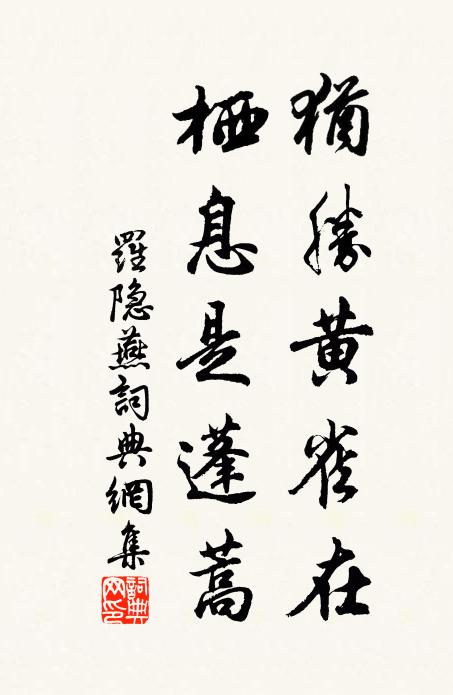 猶勝黃雀在
栖息是蓬蒿
羅隐燕詞典網集
詞典网印